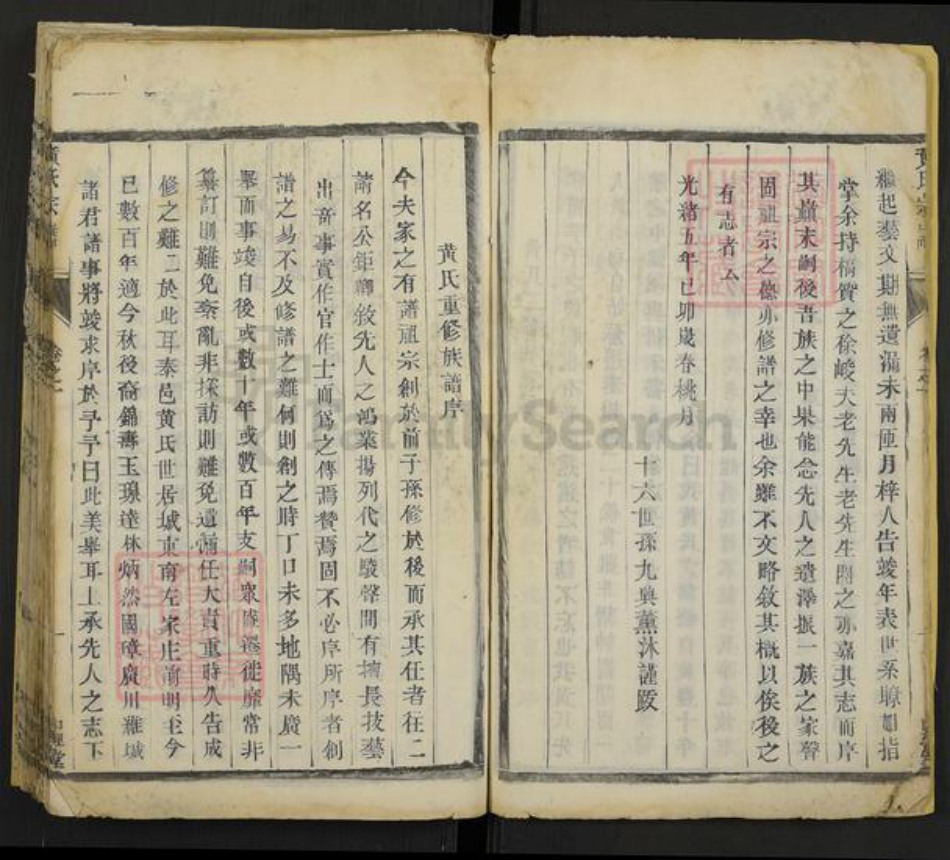 繼起藝文期無遺漏未兩匝月梓人告竣年表世系瞭如指
掌余持稿質之徐峻夫老先生老先生閱之亦嘉其志而序
其巔末嗣後吾族之中果能念先人之遺澤振一族之家聲
固祖宗之德亦修譜之幸也余雖不文略敘其概以俟後之
有志者云
光緒五年己卯歲春桃月
十六世孫九奥薰沐謹跋
黃氏重修族譜序
今夫家之有譜祖宗創於前子孫修於後而承其任者往二
請名公鉅卿敘先人之鴻業揚列代之駿聲間有擅長技藝
出奇事實作官作士而爲之傳焉贊焉固不必序所序者創
譜之易不及修譜之難何則創之時丁口未多地隅未廣一
舉而事竣自後或數十年或數百年支嗣衆盛遷徙靡常非
纂訂則難免紊亂非採訪則難免遺漏任大責重時久告成
修之難二於此耳奉邑黃氏世居城東南左家庄前明至今
已數百年適今秋後裔錦濤玉璟達林炳然國璋廣川雅域
諸君譜事將竣求序於予予曰此美舉耳上承先人之志下
黃氏宗譜
卷之一
FamilySearch